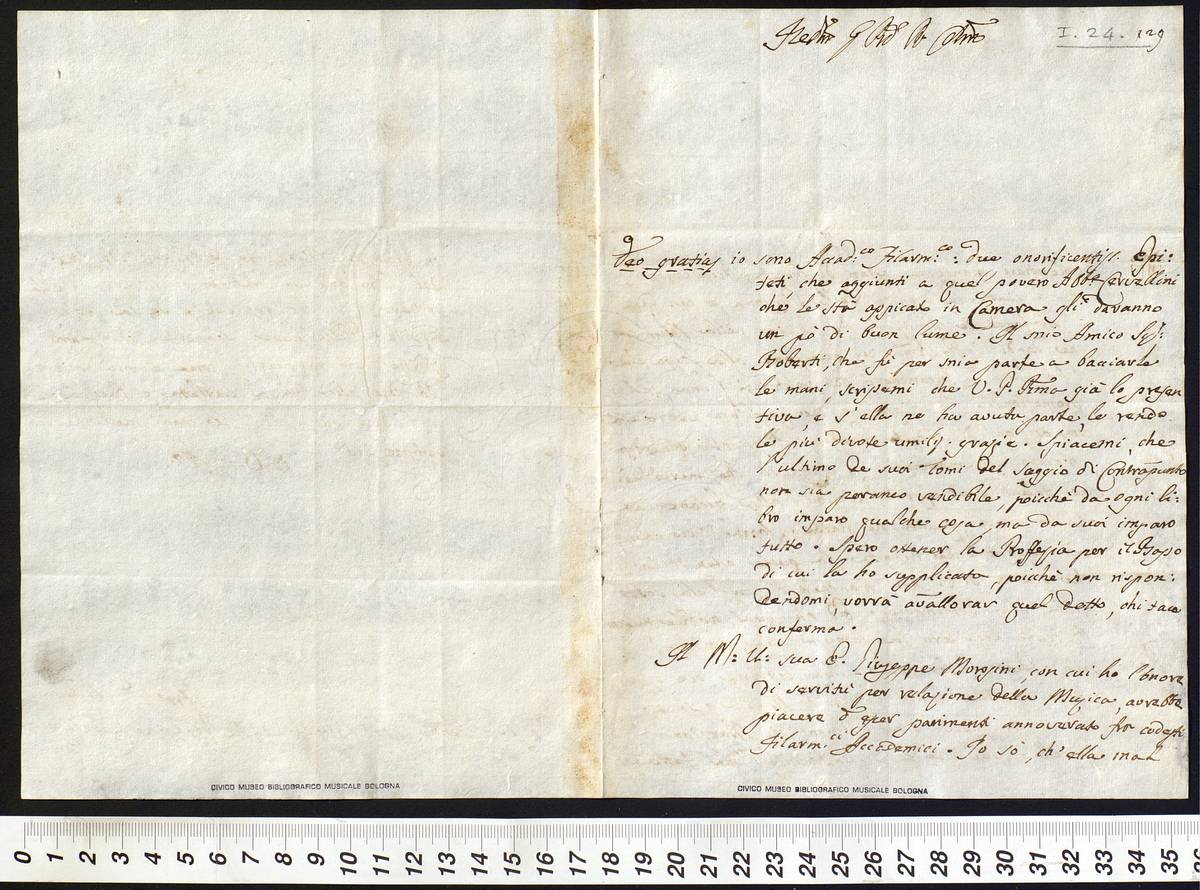 I. 24. 129
Deo gratias io sono Accad:co Filarm:co: due onorificentiss. Epi:
teti che aggiunti a quel povero Abbe Cervellini
che le stà appicato in Camera gli daranno
un pò di buon lume. Il mio Amico Sig:
Roberti, che fù per mia parte a bacciarle
le mani, scrissemi che V. P. Rma già lo presen
tiva, e s'ella ne ha avuta parte, le rendo
le più divote umiliss. grazie. Spiacemi, che
l'ultimo de suoi tomi del saggio di Contrapunto
non sia peranco vendibile, poicchè da ogni li:
bro imparo qualche cosa, ma da suoi imparo
tutto. Spero ottener la Proffesia per il Basso
di cui la ho supplicata, poicchè non rispon:
dendomi, vorrà avallorar quel detto, chi tace
conferma.
Il N: U: sua E. Giuseppe Morosini, con cui ho l'onore
di servitù per relazione della Musica, avrebbe
piacere d'esser parimenti annoverato fra codesti
Filarm:ci Accademici. Io sò, ch'ella mal
CIVICO MUSEO BIBLIOGRAFICO MUSICALE BOLOGNA
CIVICO MUSEO BIBLIOGRAFICO MUSICALE BOLOGNA
0 1 2 3 4 5 6 7 8 9 10 11 12 13 14 15 16 17 18 19 20 21 22 23 24 25 26 27 28 29 30 31 32 33 34 35